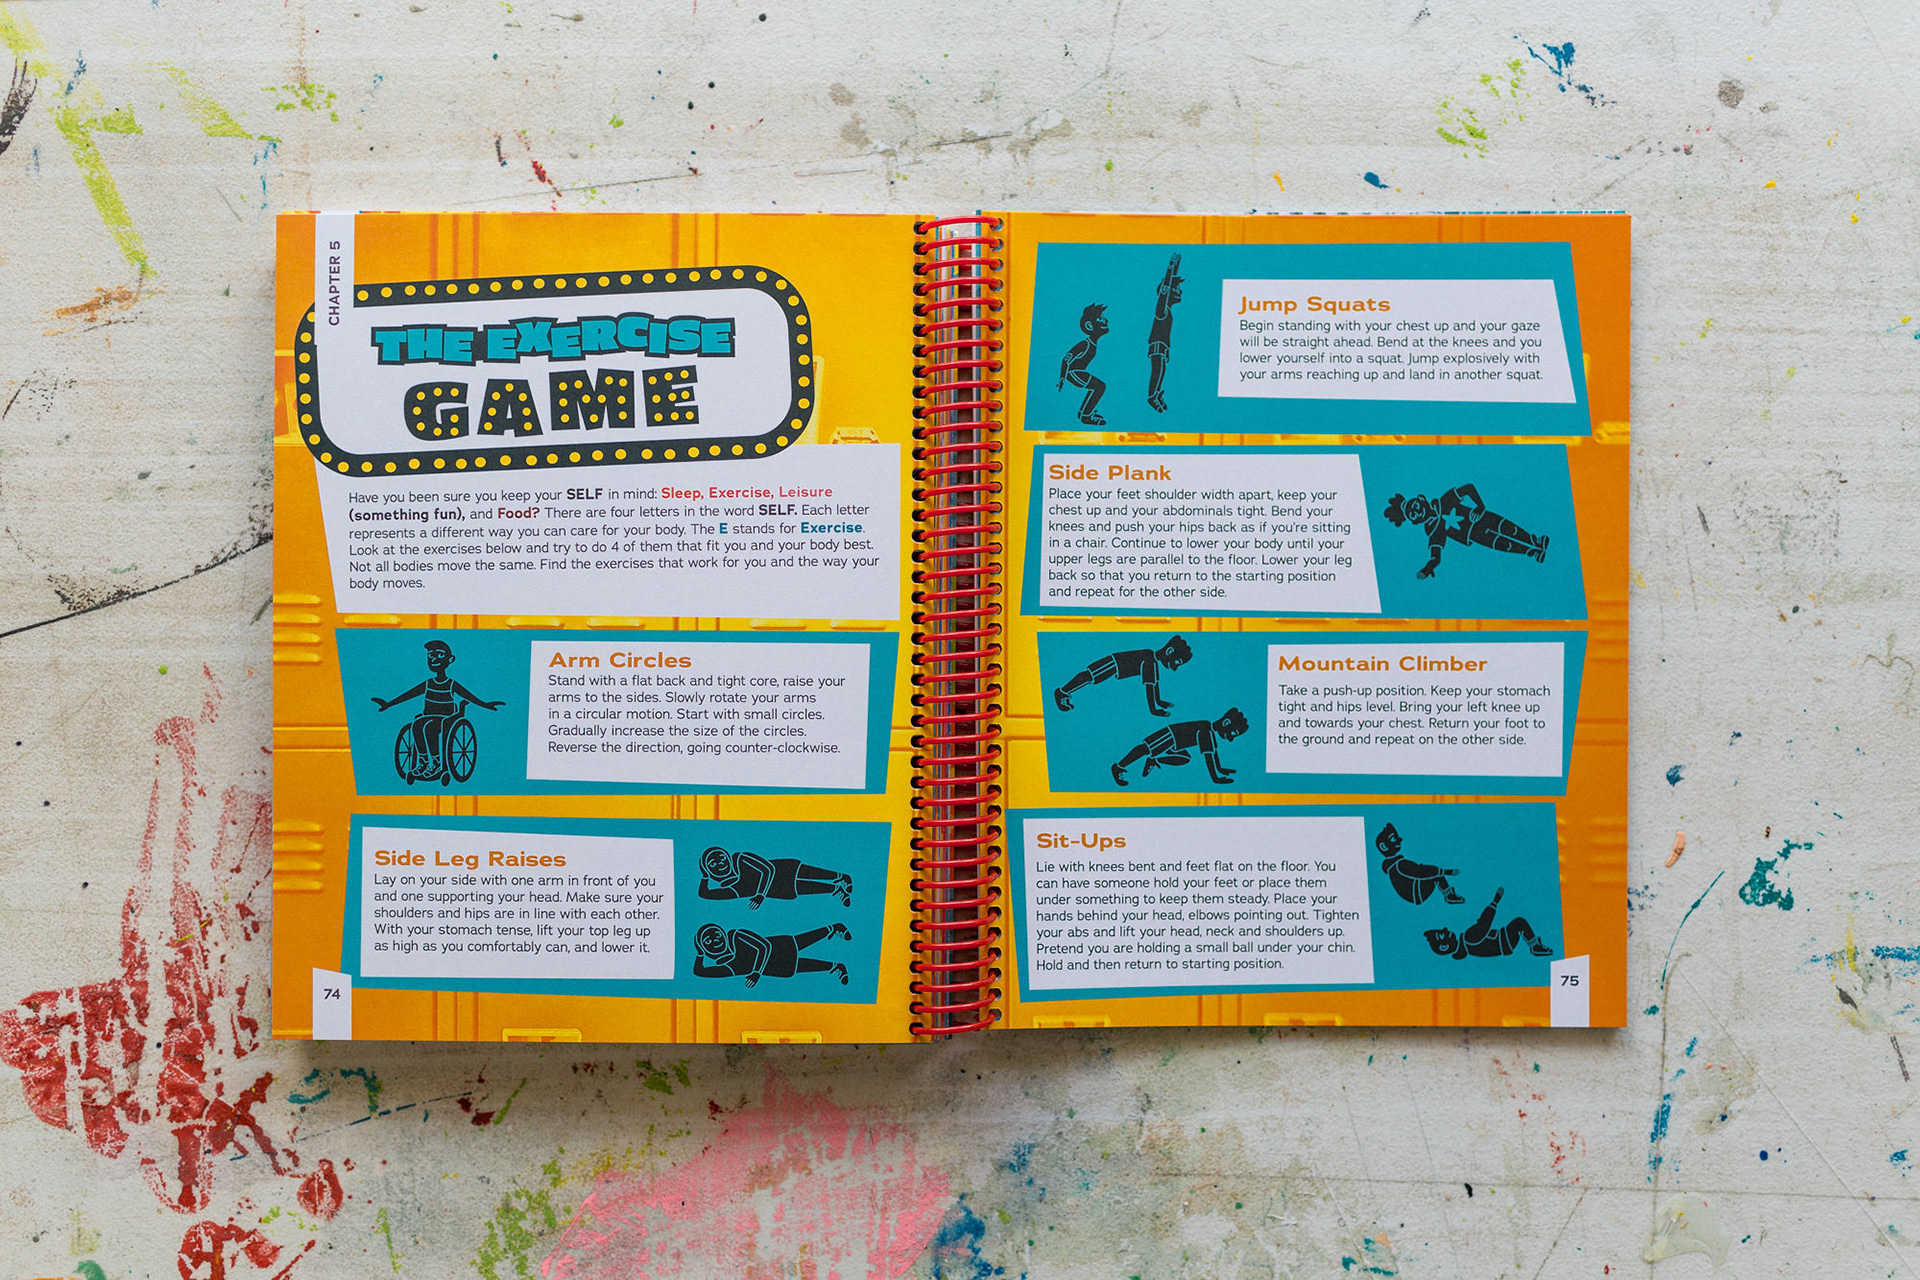 CHAPTER 5
THE EXERCISE
GAME
Have you been sure you keep your SELF in mind: Sleep, Exercise, Leisure
(something fun), and Food? There are four letters in the word SELF. Each letter
represents a different way you can care for your body. The E stands for Exercise.
Look at the exercises below and try to do 4 of them that fit you and your body best.
Not all bodies move the same. Find the exercises that work for you and the way your
body moves.
Arm Circles
Stand with a flat back and tight core, raise your
arms to the sides. Slowly rotate your arms
in a circular motion. Start with small circles.
Gradually increase the size of the circles.
Reverse the direction, going counter-clockwise.
Side Leg Raises
Lay on your side with one arm in front of you
and one supporting your head. Make sure your
shoulders and hips are in line with each other.
With your stomach tense, lift your top leg up
as high as you comfortably can, and lower it.
74
Jump Squats
Begin standing with your chest up and your gaze
will be straight ahead. Bend at the knees and you
lower yourself into a squat. Jump explosively with
your arms reaching up and land in another squat.
Side Plank
Place your feet shoulder width apart, keep your
chest up and your abdominals tight. Bend your
knees and push your hips back as if you're sitting
in a chair. Continue to lower your body until your
upper legs are parallel to the floor. Lower your leg
back so that you return to the starting position
and repeat for the other side.
Mountain Climber
Take a push-up position. Keep your stomach
tight and hips level. Bring your left knee up
and towards your chest. Return your foot to
the ground and repeat on the other side.
Sit-Ups
Lie with knees bent and feet flat on the floor. You
can have someone hold your feet or place them
under something to keep them steady. Place your
hands behind your head, elbows pointing out. Tighten
your abs and lift your head, neck and shoulders up.
Pretend you are holding a small ball under your chin.
Hold and then return to starting position.
75